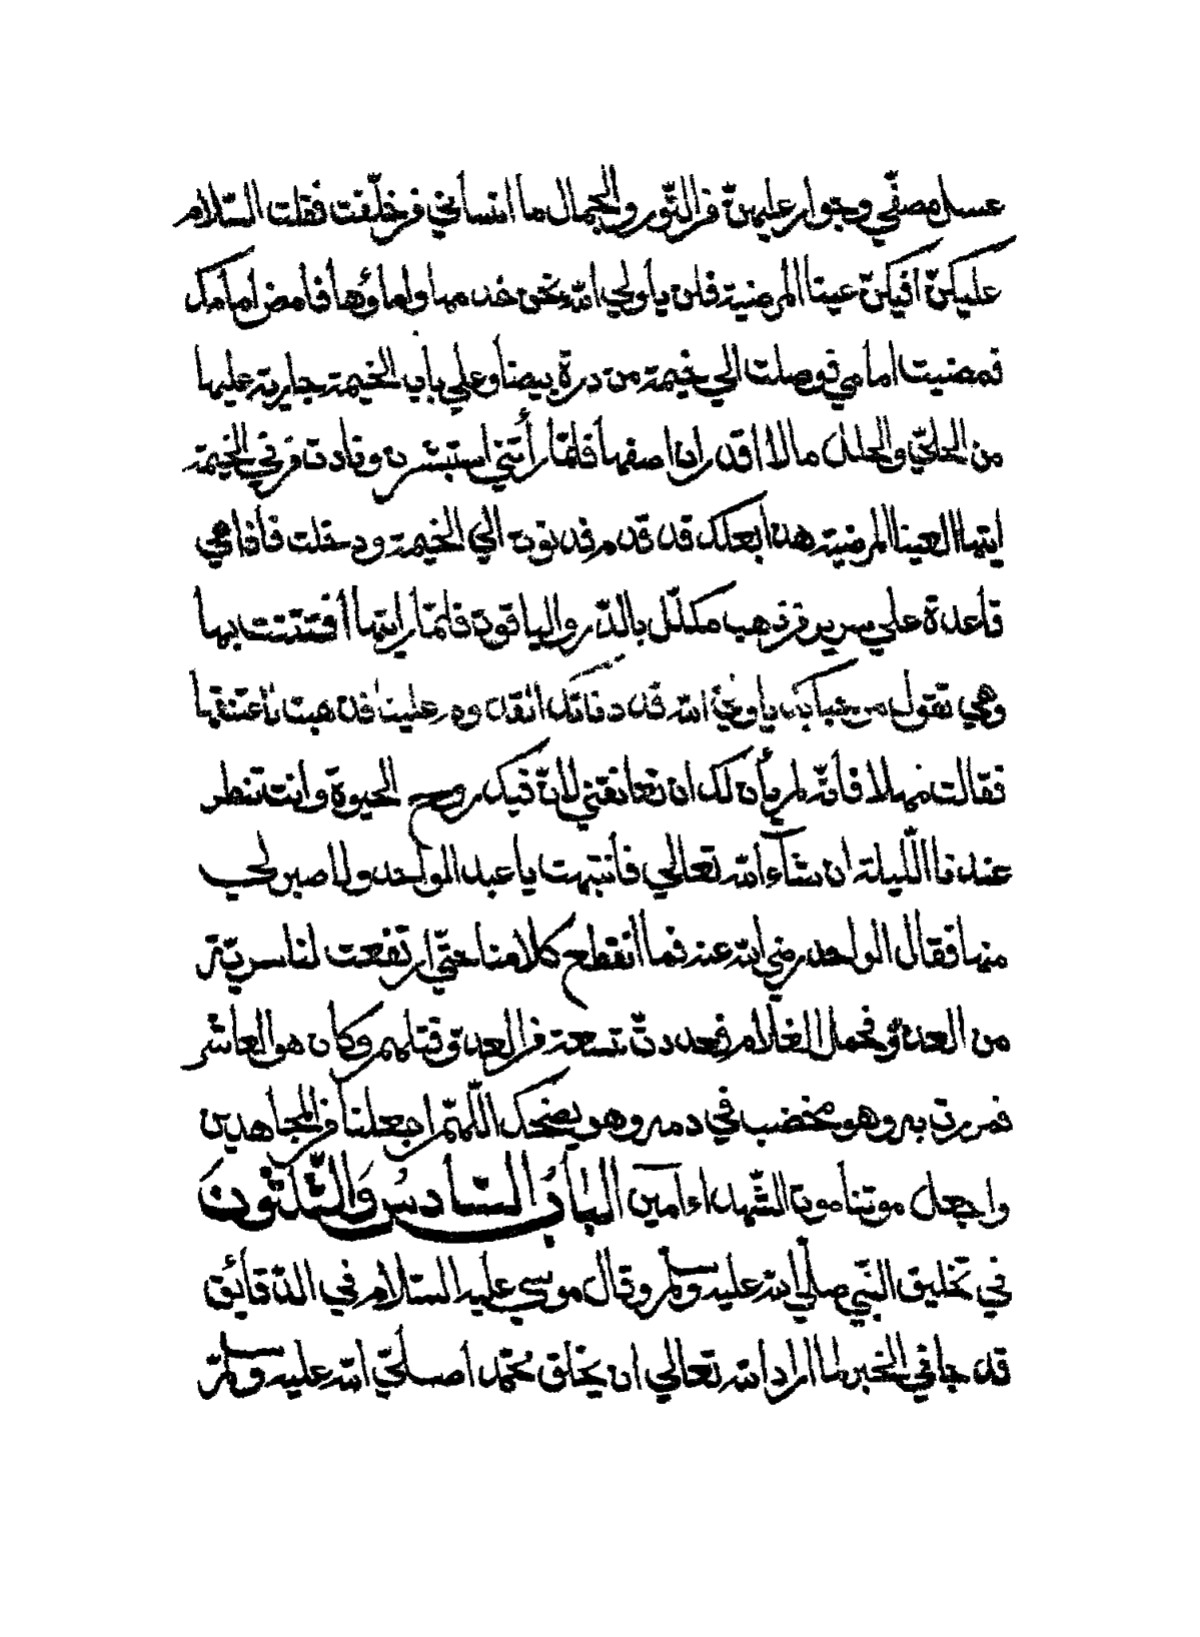 عسل مصفّي وجوار عليهنّ من النّور والجمال ما انساني من خلّفت فقلت السّلام
عليكنّ افيكنّ عينا المرضية قلن يا ولي الله نحن خدمها واماؤها فامض امامك
فمضيت امامي فوصلت الي خيمة من درة بيضا وعلي باب الخيمة جارية عليها
من الحليّ والحلل مالا اقدر ان اصفها فلمّا رأتني استبشرت ونادت من في الخيمة
ايتها العينا المرضية هذا بعلك قد قدم فدنوت الي الخيمة ودخلت فاذا هي
قاعدة علي سرير من ذهب مكلّل بالدّر والياقوت فلمّا رايتها افتتنت بها
وهي تقول مرحبا بك يا ولي الله قد دنا لك القدوم علينا فذهبت لاعتنقها
فقالت مهلا فانّه لم يأن لك ان تعانقني لانّ فيك روح الحيوة وانت تفطر
عندنا اللّيلة ان شآء الله تعالي فانتبهت يا عبد الواحد ولا صبر لي
عنها فقال الواحد رضي الله عنه فما انقطع كلامنا حتّي ارتفعت لنا سريّة
من العدوّ فحمل الغلام فعددتّ تسعة من العدوّ قتلهم وكان هو العاشر
فمررت به وهو مخضب في دمه وهو يضحك اللّهمّ اجعلنا من المجاهدين
واجعل موتنا موت الشّهداء آمين الباب السّادس والثّلثون
في تخليق النّبي صلّي الله عليه وسلم وقال موسي عليه السّلام في الدّقائق
قد جا في الخبر لما اراد الله تعالي ان يخلق محمّدا صلّي الله عليه وسلّم